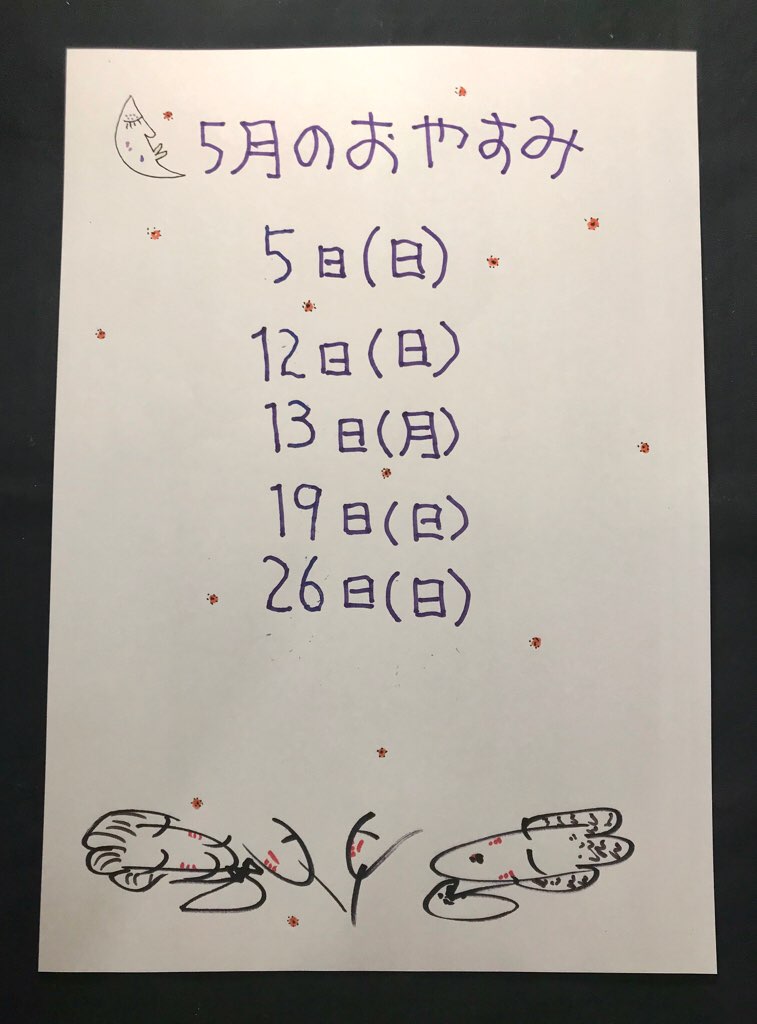 5月のおやすみ
5日(日)
12日(日)
13日(月)
19日(日)
26日(日)